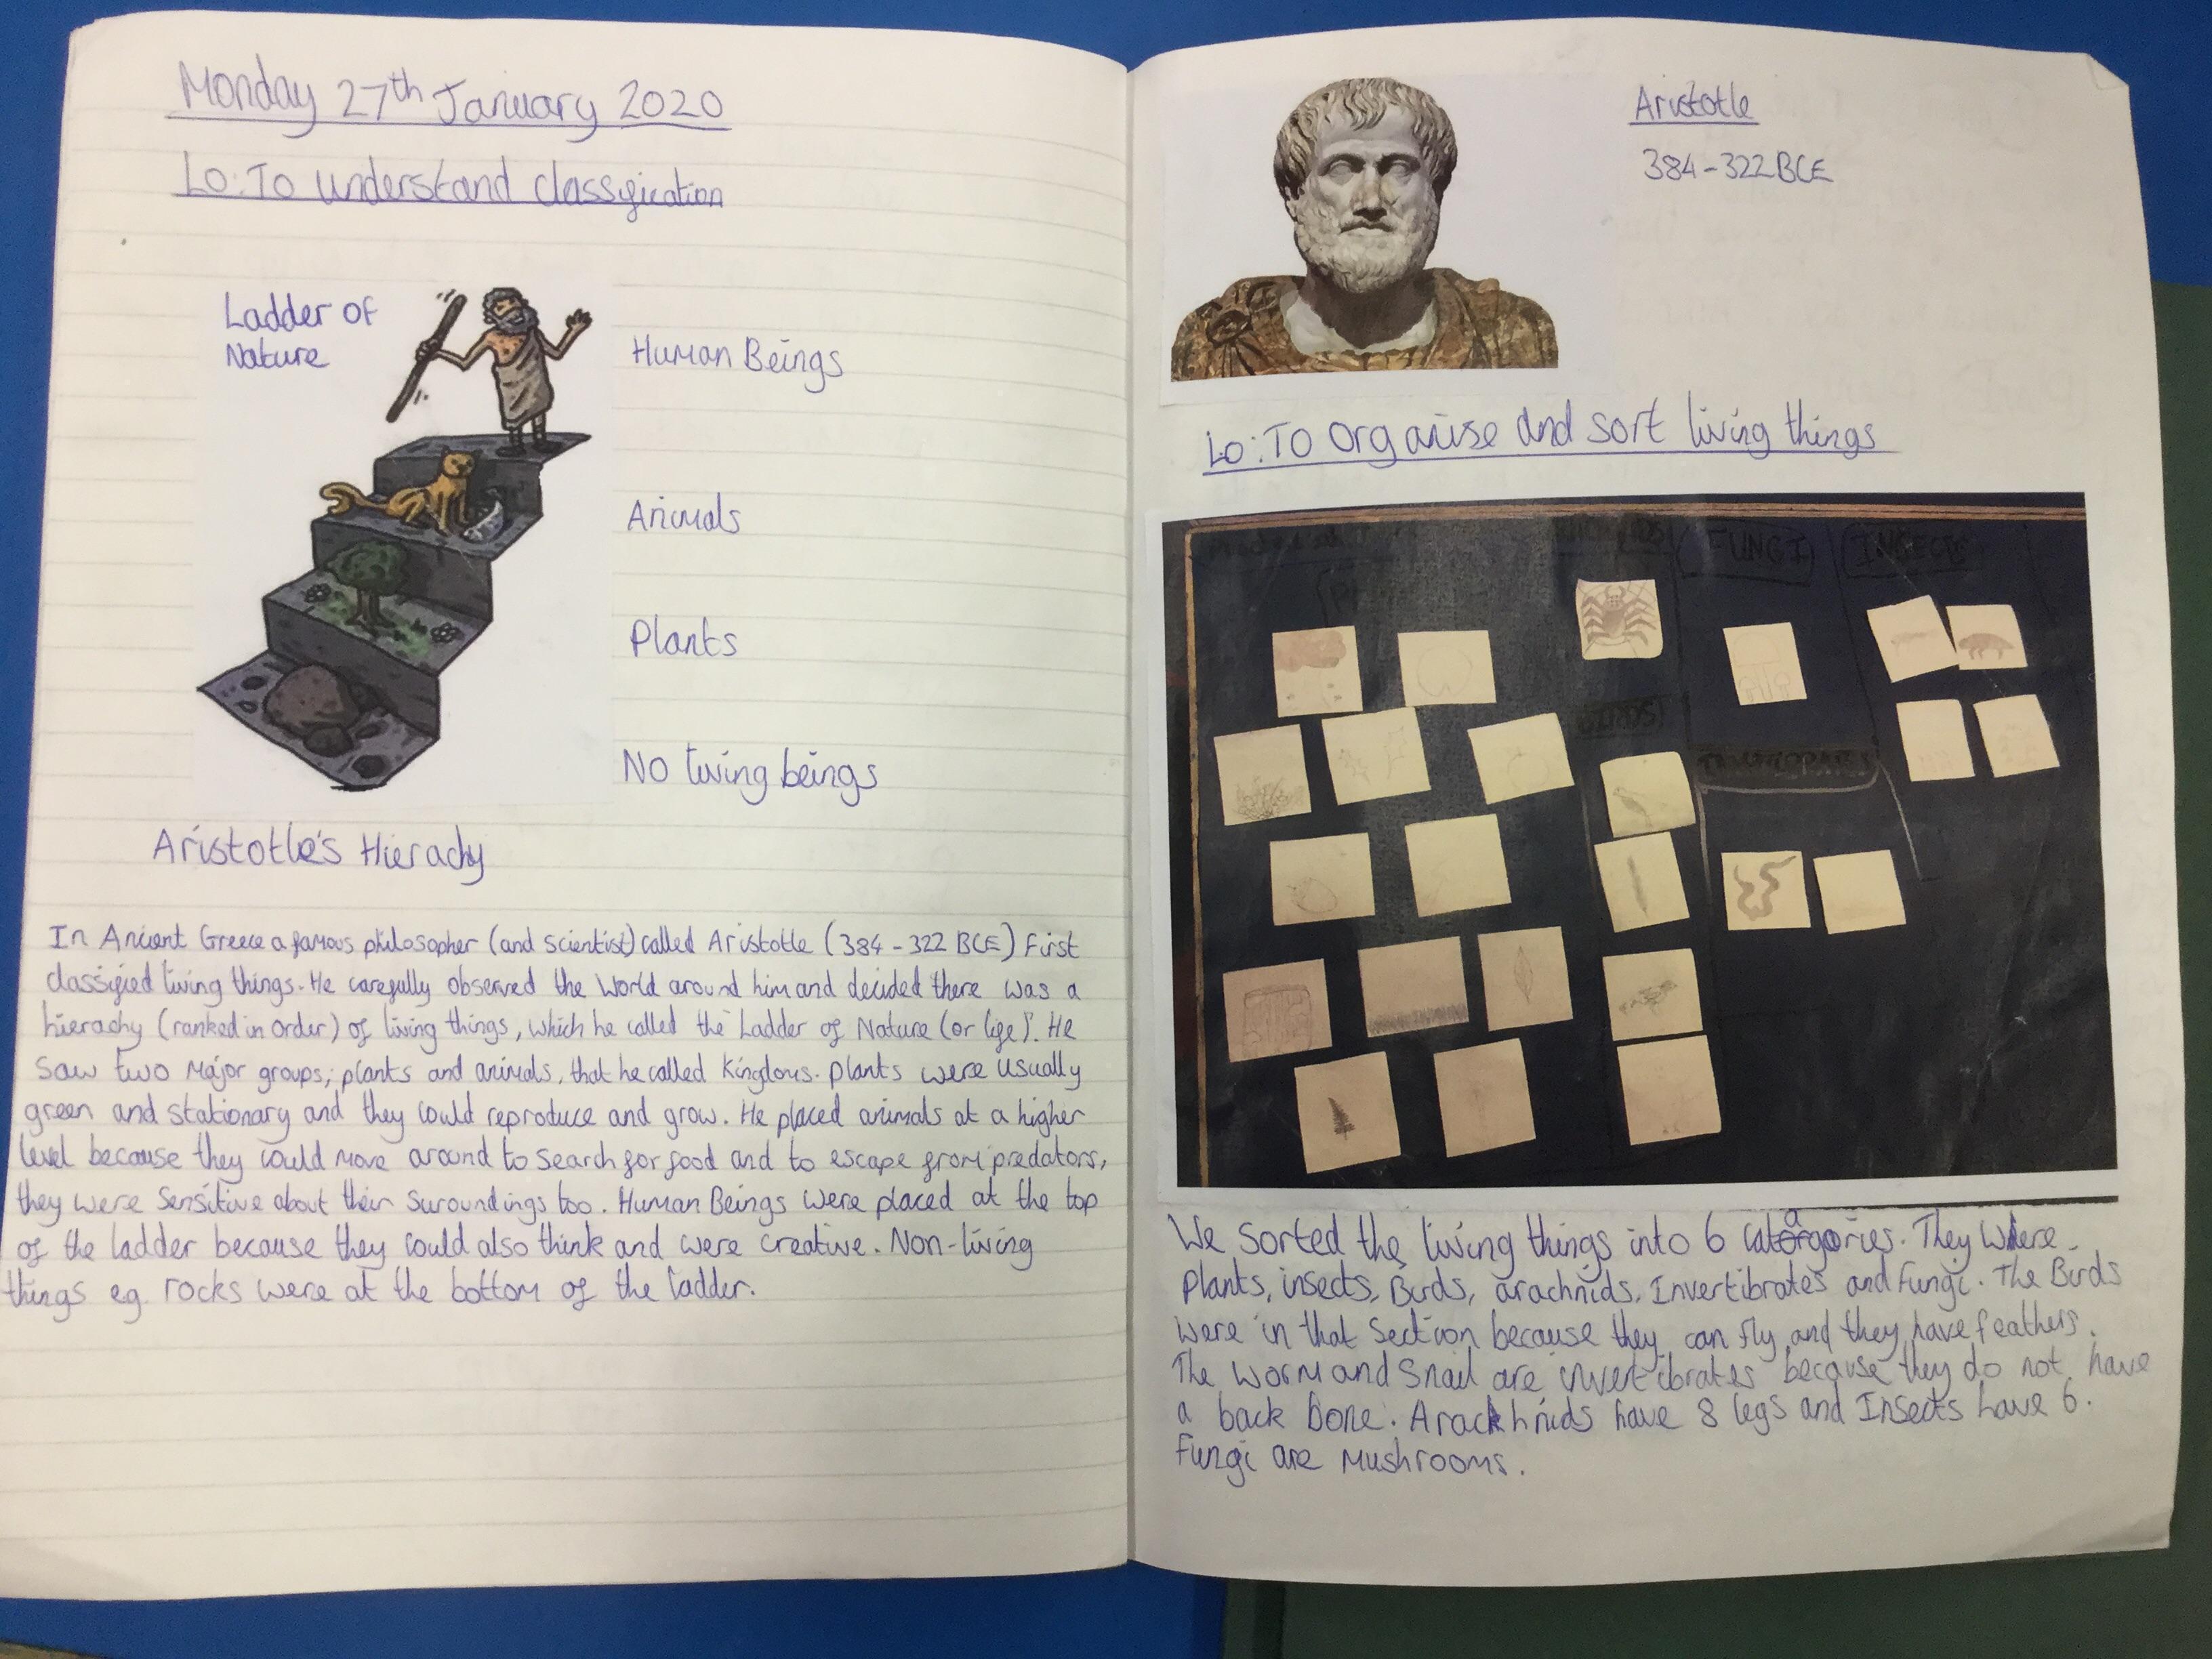 Monday 27th January 2020
Lo: To understand classification
Ladder of
Nature
Human Beings
Animals
Plants
No living beings
Aristotle's Hierachy
In Ancient Greece a famous philosopher (and scientist) called Aristotle (384-322 BCE) first
classified living things. He carefully observed the world around him and decided there was a
hierachy (ranked in order) of living things, which he called the "Ladder of Nature (or life)". He
saw two major groups; plants and animals, that he called Kingdoms. Plants were usually
green and stationary and they could reproduce and grow. He placed animals at a higher
level because they could move around to search for food and to escape from predators,
they were sensitive about their suroundings too. Human Beings were placed at the top
of the ladder because they could also think and were creative. Non-living
things eg. rocks were at the bottom of the ladder.
Aristotle
384-322 BCE
Lo: To organise and sort living things
FUNGI
INSECTS
BIRDS
We sorted the living things into 6 catagories. They were
plants, insects, Birds, arachnids, Invertibrates and Fungi. The Birds
were in that section because they can fly and they have feathers.
The worm and snail are invertibrates because they do not have
a back bone. Arachnids have 8 legs and Insects have 6.
Fungi are mushrooms.